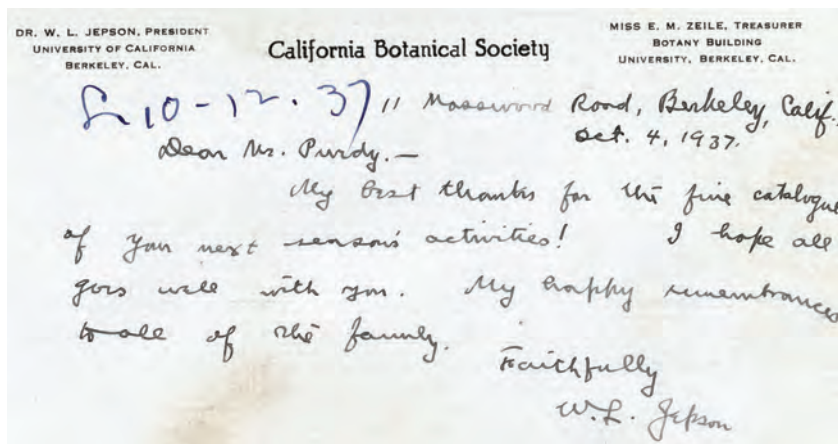 DR. W. L. JEPSON, PRESIDENT
UNIVERSITY OF CALIFORNIA
BERKELEY, CAL.
California Botanical Society
MISS E. M. ZEILE, TREASURER
BOTANY BUILDING
UNIVERSITY, BERKELEY, CAL.
10-12-37
11 Mosswood Road, Berkeley, Calif.,
Oct. 4, 1937.
Dear Mr. Purdy.—
My best thanks for the fine catalogue
of your next season's activities! I hope all
goes well with you. My happy remembrances
to all of the family.
Faithfully
W. L. Jepson